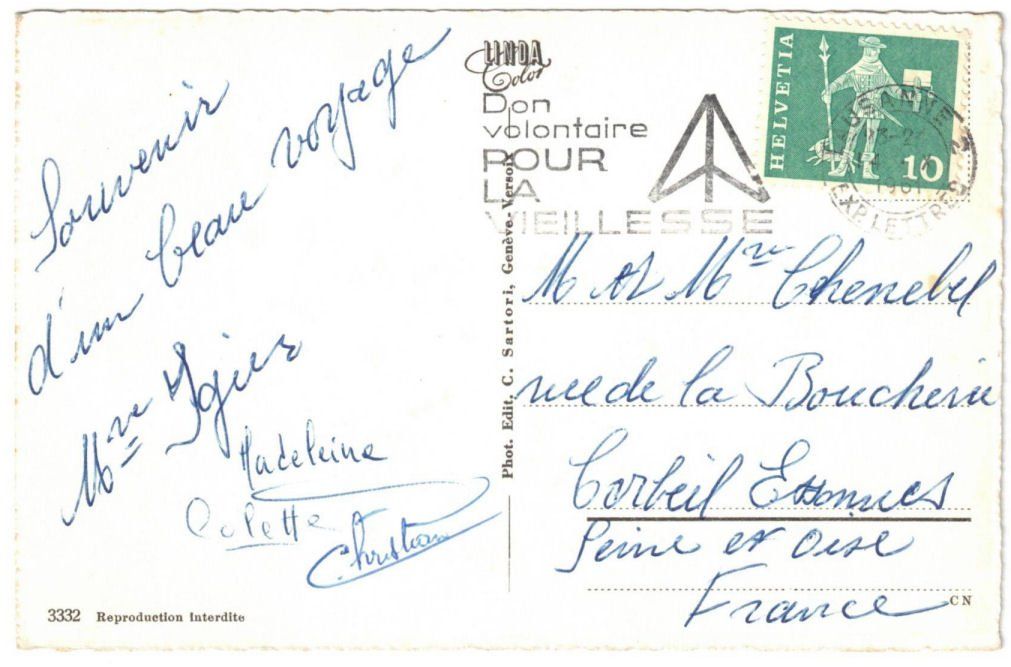 Souvenir
d'un beau voyage
Mme Igier
Madeleine
Colette
Christian
3332 Reproduction Interdite
LINDA
Color
Don
volontaire
POUR
LA
VIEILLESSE
Phot. Edit. C. Sartori, Genève-Versoix
HELVETIA
10
LAUSANNE 1
EXP. LETTRES
M et Mme Chenebel
rue de la Boucherie
Corbeil Essonnes
Seine et Oise
France
CN